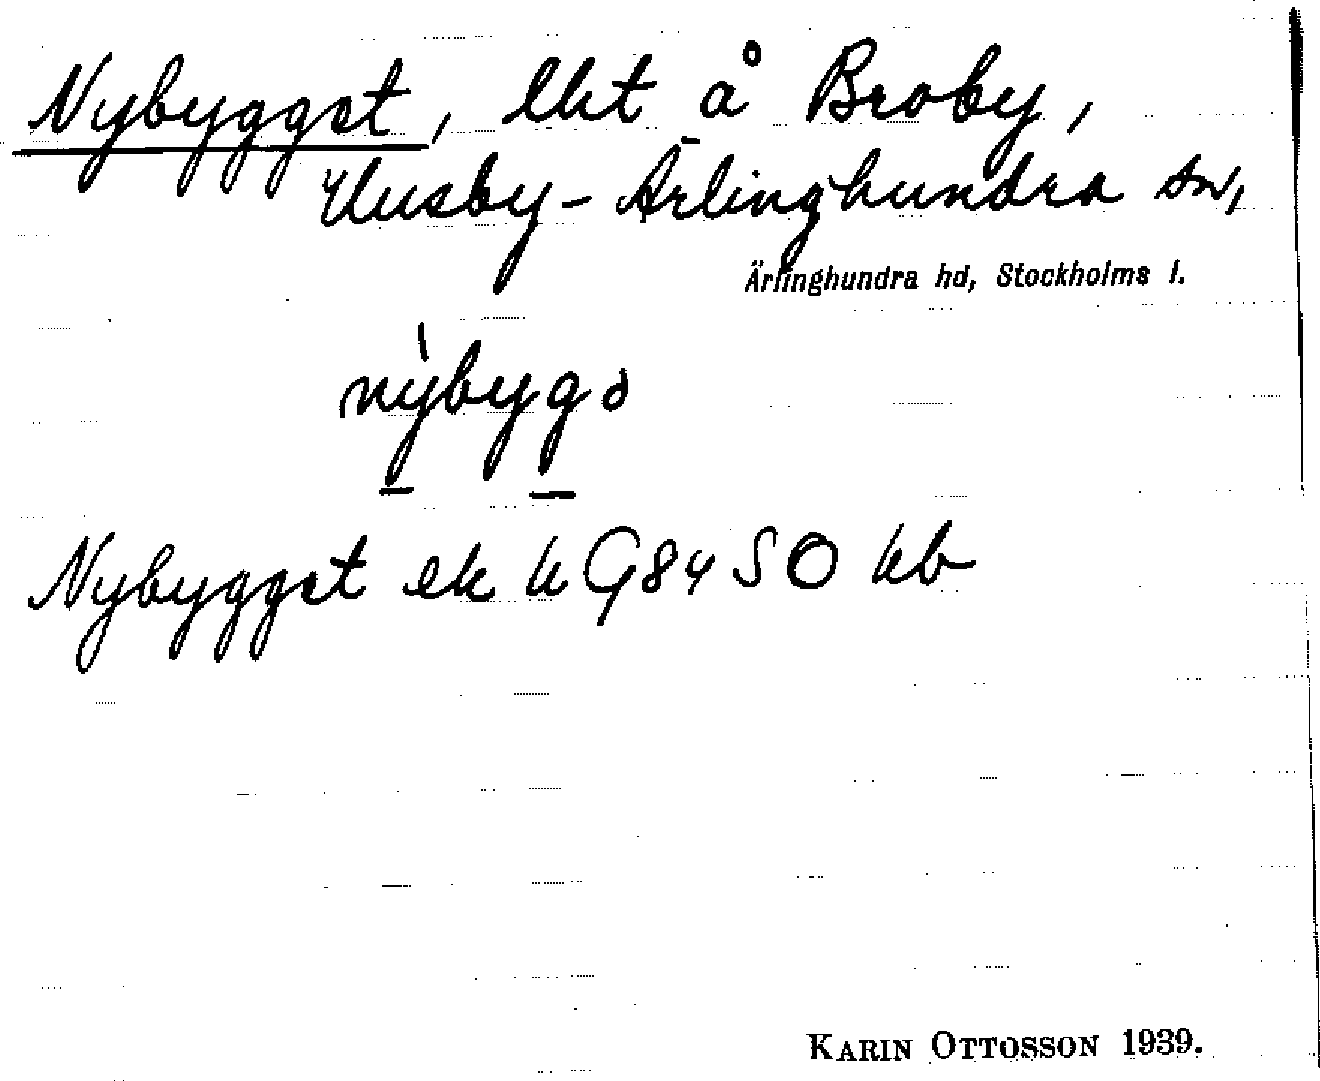 Nybygget, lht å Broby,
Husby-Ärlinghundra sn,
Ärlinghundra hd, Stockholms l.
Nybygget ek
KARIN OTTOSSON 1939.